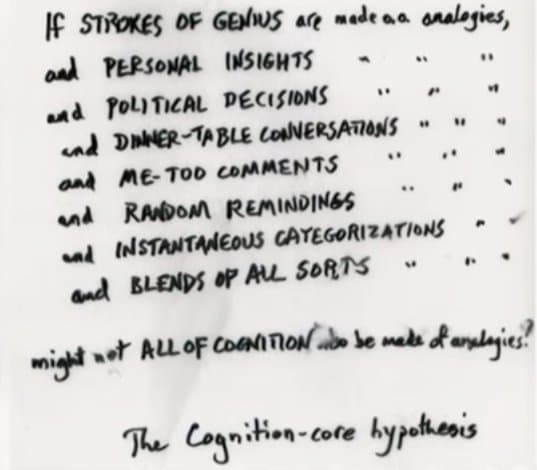 If STROKES OF GENIUS are made as analogies,
and PERSONAL INSIGHTS " " "
and POLITICAL DECISIONS " " "
and DINNER-TABLE CONVERSATIONS " " "
and ME-TOO COMMENTS " " "
and RANDOM REMINDINGS " " "
and INSTANTANEOUS CATEGORIZATIONS " "
and BLENDS OF ALL SORTS " " "
might not ALL OF COGNITION be made of analogies?
The Cognition-core hypothesis